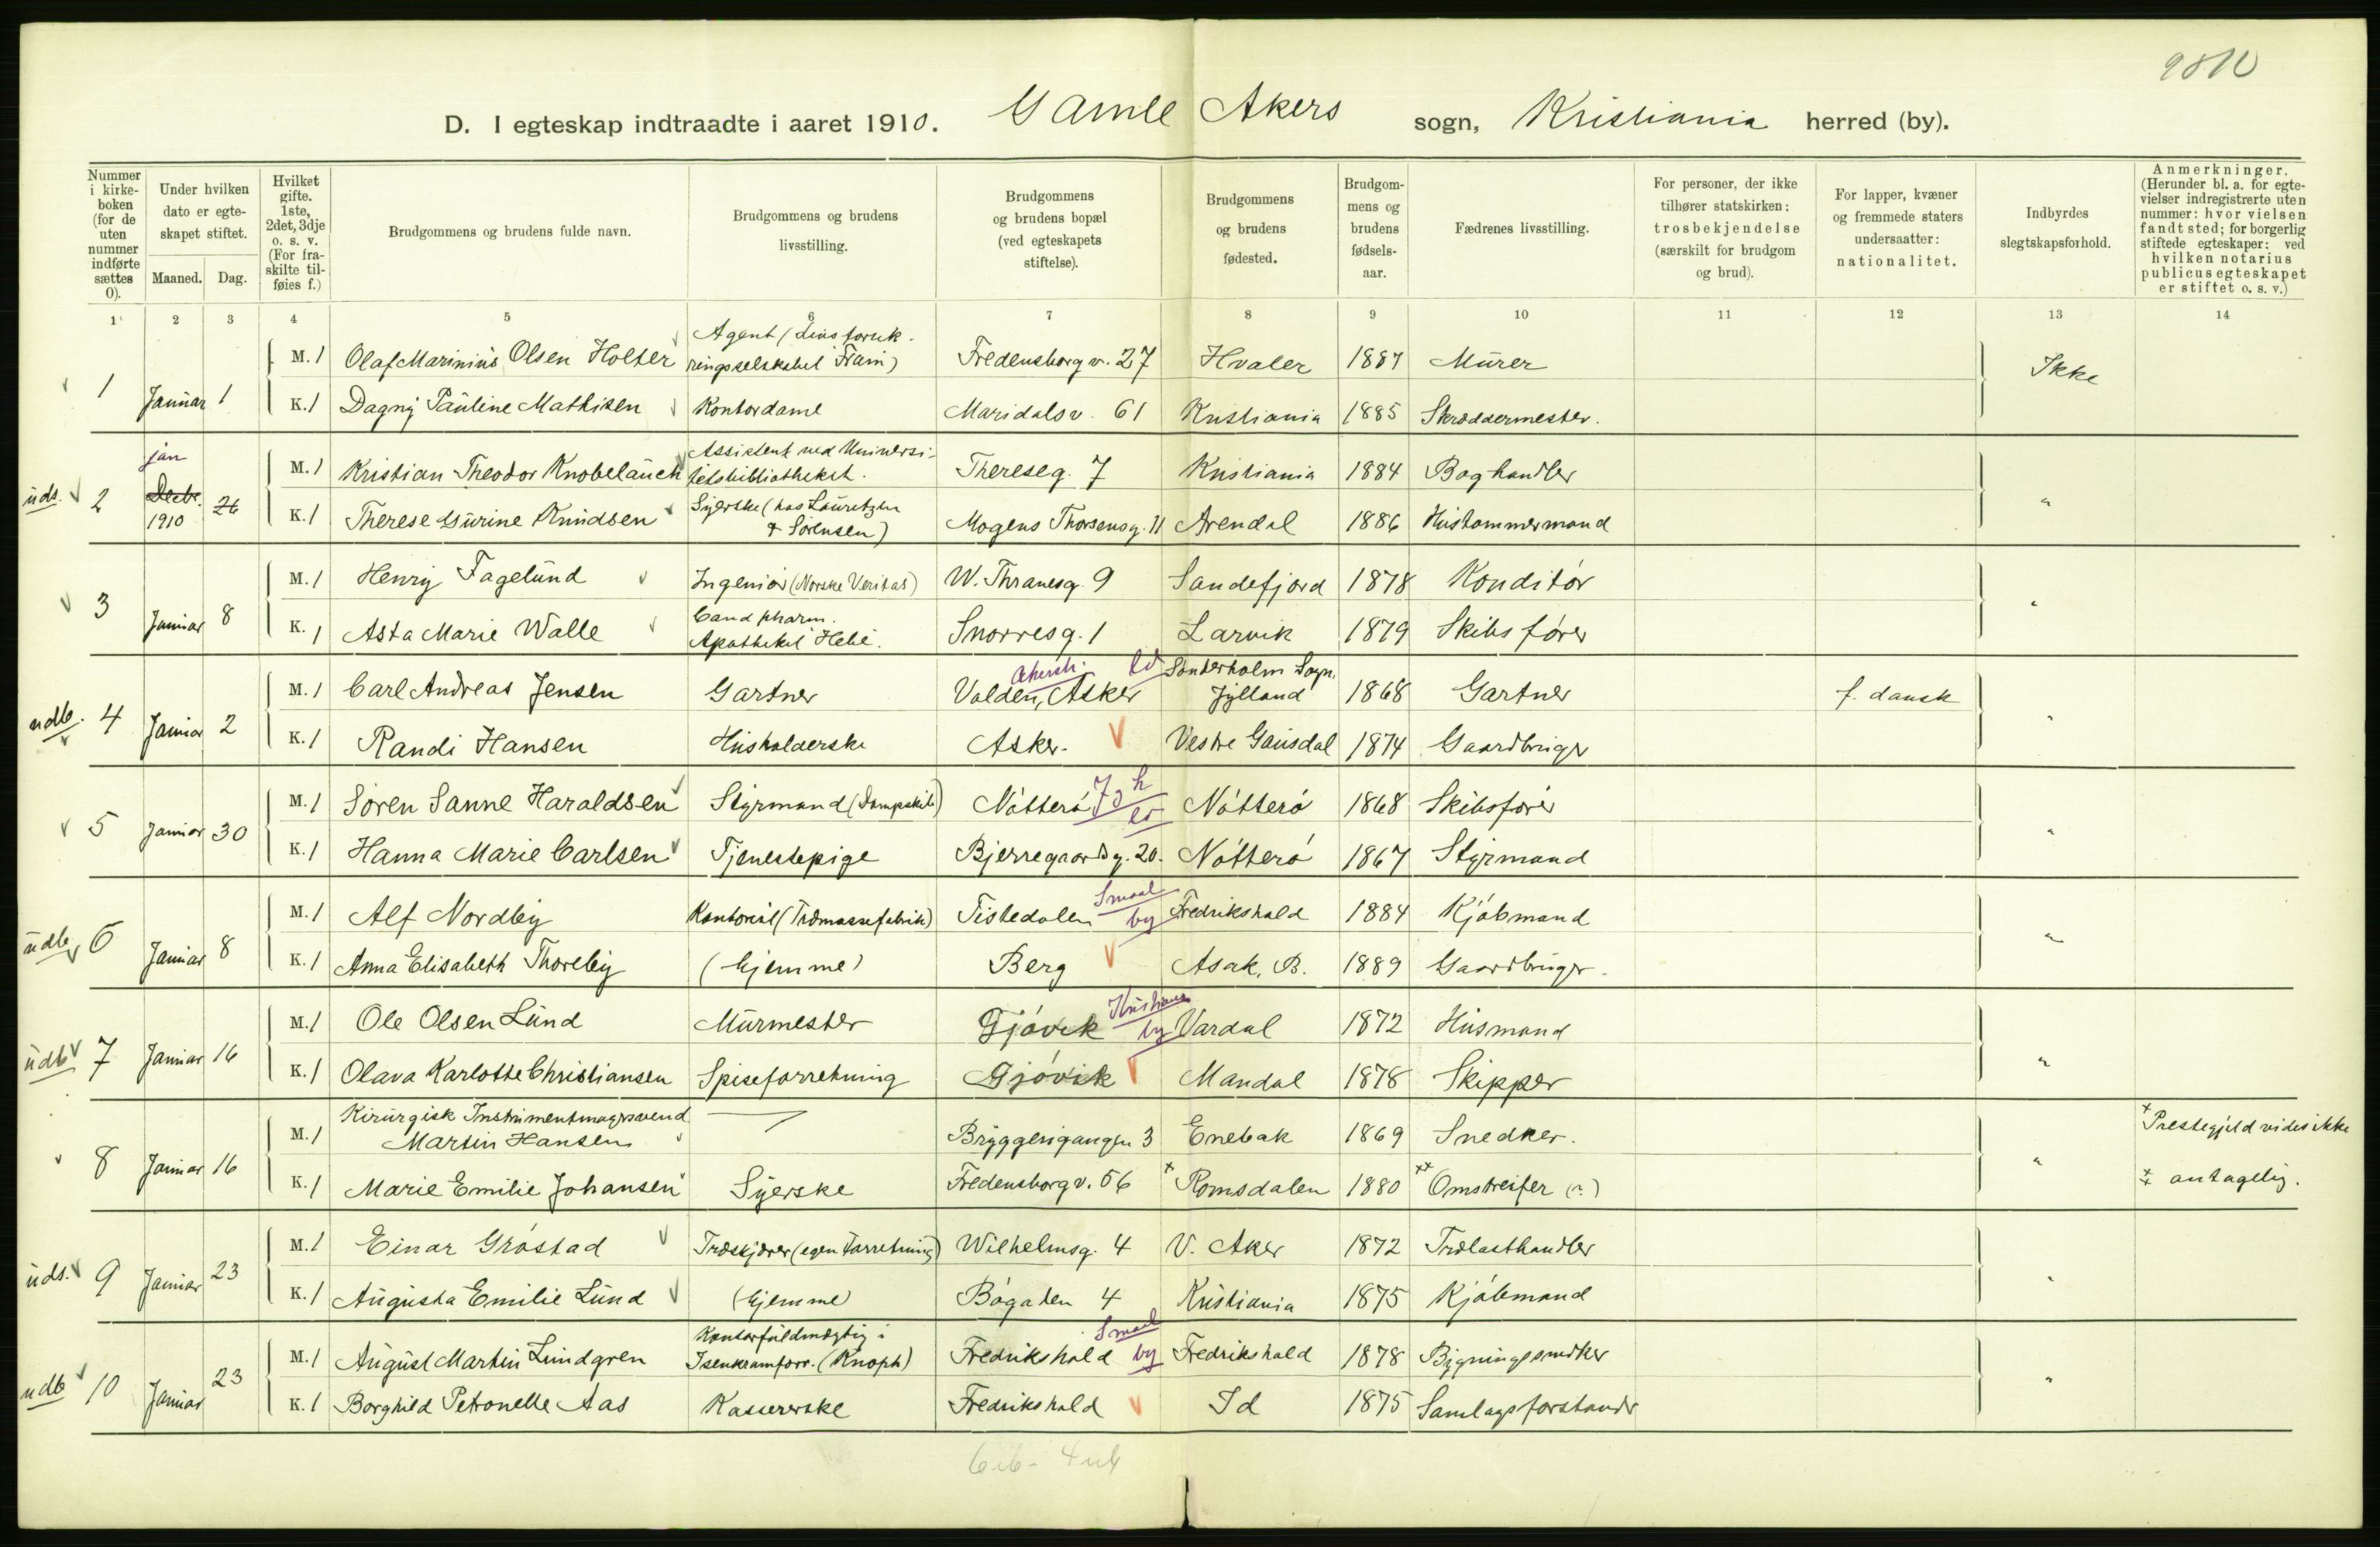 9810
D. I egteskap indtraadte i aaret 1910. Gamle Akers sogn, Kristiania herred (by).
Nummer i kirke-boken (for de uten nummer indførte sættes 0).
Under hvilken dato er egte-skapet stiftet.
Maaned. Dag.
Hvilket gifte. 1ste, 2det, 3dje o. s. v. (For fra-skilte til-føies f.)
Brudgommens og brudens fulde navn.
Brudgommens og brudens livsstilling.
Brudgommens og brudens bopæl (ved egteskapets stiftelse).
Brudgommens og brudens fødested.
Brudgom-mens og brudens fødsels-aar.
Fædrenes livsstilling.
For personer, der ikke tilhører statskirken: trosbekjendelse (særskilt for brudgom og brud).
For lapper, kvæner og fremmede staters undersaatter: nationalitet.
Indbyrdes slegtskapsforhold.
Anmerkninger. (Herunder bl. a. for egte-vielser indregistrerte uten nummer: hvor vielsen fandt sted; for borgerlig stiftede egteskaper: ved hvilken notarius publicus egteskapet er stiftet o. s. v.)
1 2 3 4 5 6 7 8 9 10 11 12 13 14
1 Januar 1
M. 1 Olaf Marinius Olsen Holter Agent (Livsforsik-ringsselskabet Fram) Fredensborgv. 27 Hvaler 1887 Murer Ikke
K. 1 Dagny Pauline Mathisen Kontordame Maridalsv. 61 Kristiania 1885 Skræddermester.
uds. 2 jan Decbr. 1910 26
M. 1 Kristian Theodor Knobelauch Assistent ved Universi-tetsbibliotheket. Thereseg. 7 Kristiania 1884 Boghandler "
K. 1 Therese Gurine Knudsen Syerske (hos Lauretzen & Sørensen) Mogens Thorsensg. 11 Arendal 1886 Hustømmermand
3 Januar 8
M. 1 Henry Fagelund Ingeniør (Norske Veritas) W. Thranesg. 9 Sandefjord 1878 Konditor "
K. 1 Asta Marie Walle Cand pharm. Apotheket Hebe. Snorresg. 1 Larvik 1879 Skibsfører
udb. 4 Januar 2
M. 1 Carl Andreas Jensen Gartner Valden, Asker Akersh. ld Sønderholm Sogn, Jylland 1868 Gartner f. dansk "
K. 1 Randi Hansen Husholderske Asker. Vestre Gausdal 1874 Gaardbruger
5 Januar 30
M. 1 Søren Sanne Haraldsen Styrmand (Dampskib) Nøtterø Nøtterø 1868 Skibsfører "
K. 1 Hanna Marie Carlsen Tjenestepige Bjerregaardsg. 20. Nøtterø 1867 Styrmand
udb. 6 Januar 8
M. 1 Alf Nordby Kontorist (Træmassefabrik) Tistedalen Smaal by Fredrikshald 1884 Kjøbmand "
K. 1 Anna Elisabeth Thoreby (hjemme) Berg Asak, B. 1889 Gaardbruger.
udb 7 Januar 16
M. 1 Ole Olsen Lund Murmester Gjøvik Kristians by Vardal 1872 Husmand "
K. 1 Olava Karlotte Christiansen Spiseforretning Gjøvik Mandal 1878 Skipper
8 Januar 16
M. 1 Kirurgisk Instrumentmagersvend Martin Hansen Bryggerigangen 3 Enebak 1869 Snedker. " × Prestegjeld vides ikke
K. 1 Marie Emilie Johansen Syerske Fredensborgv. 56 × Romsdalen 1880 ×× Omstreifer (?) ×× antagelig.
uds. 9 Januar 23
M. 1 Einar Grøstad Træskjærer (egen Forretning) Wilhelmsg. 4 V. Aker 1872 Trælasthandler "
K. 1 Augusta Emilie Lund (hjemme) Bogaten 4 Kristiania 1875 Kjøbmand
udb 10 Januar 23
M. 1 August Martin Lundgren Kontorfuldmægtig i Isenkramforr. (Knoph) Fredrikshald Smaal by Fredrikshald 1878 Bygningssnedker "
K. 1 Borghild Petronelle Aas Kassererske Fredrikshald Id 1875 Samlagsforstander